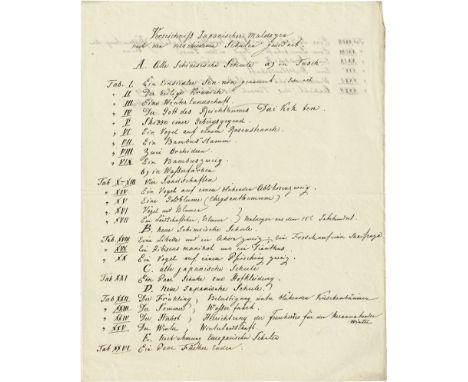 Verzeichniss Japanischer Malereyen
nach den verschiedenen Schulen geordnet.
A. Alte Schinesische Schule a) in Tusch
Tab. I. Ein Einsiedler Sen-nin genannt
" II. Der heilige Kranich
" III. Eine Winterlandschaft
" IV. Der Gott des Reichthums Dai Kok ten.
" V. Skizze einer Gebirgsgegend
" VI. Ein Vogel auf einem Rosenstrauch
" VII. Ein Bambus Stamm
" VIII. Zwei Orchideen
" VIX. Ein Bambuszweig
b) in Waßerfarben
Tab X–XIII vier Landschaften
" XIV. Ein Vogel auf einem blühenden zweig.
" XV Eine Goldblume (Chrysanthemum)
" XVI Vogel mit Blumen
" XVII Ein Blumen Malereyen aus dem Jahrhundert.
B. neue Schinesische Schule.
Tab. XVIII Eine Libelle mit zweig; ein Frosch auf einer Saxifraga
" XIX Ein Hibiscus manihot und ein Dianthus
" XX Ein Vogel auf einem Pfirsichzweig
C. alte japanische Schule
Tab XXI Ein Paar in Hofkleidung
D. Neue Japanische Schule
Tab XXII. Der Frühling; Belustigung unter blühenden Kirschenbäumen
" XXIII. Der Sommer; Wasserfahrt
" XXIV. Der Herbst; für den herannahenden
Winter
" XXV. Der Winter, Winterlandschaft
E. Nachahmung Europäischer Schulen
Tab XXVI. Ein Paar